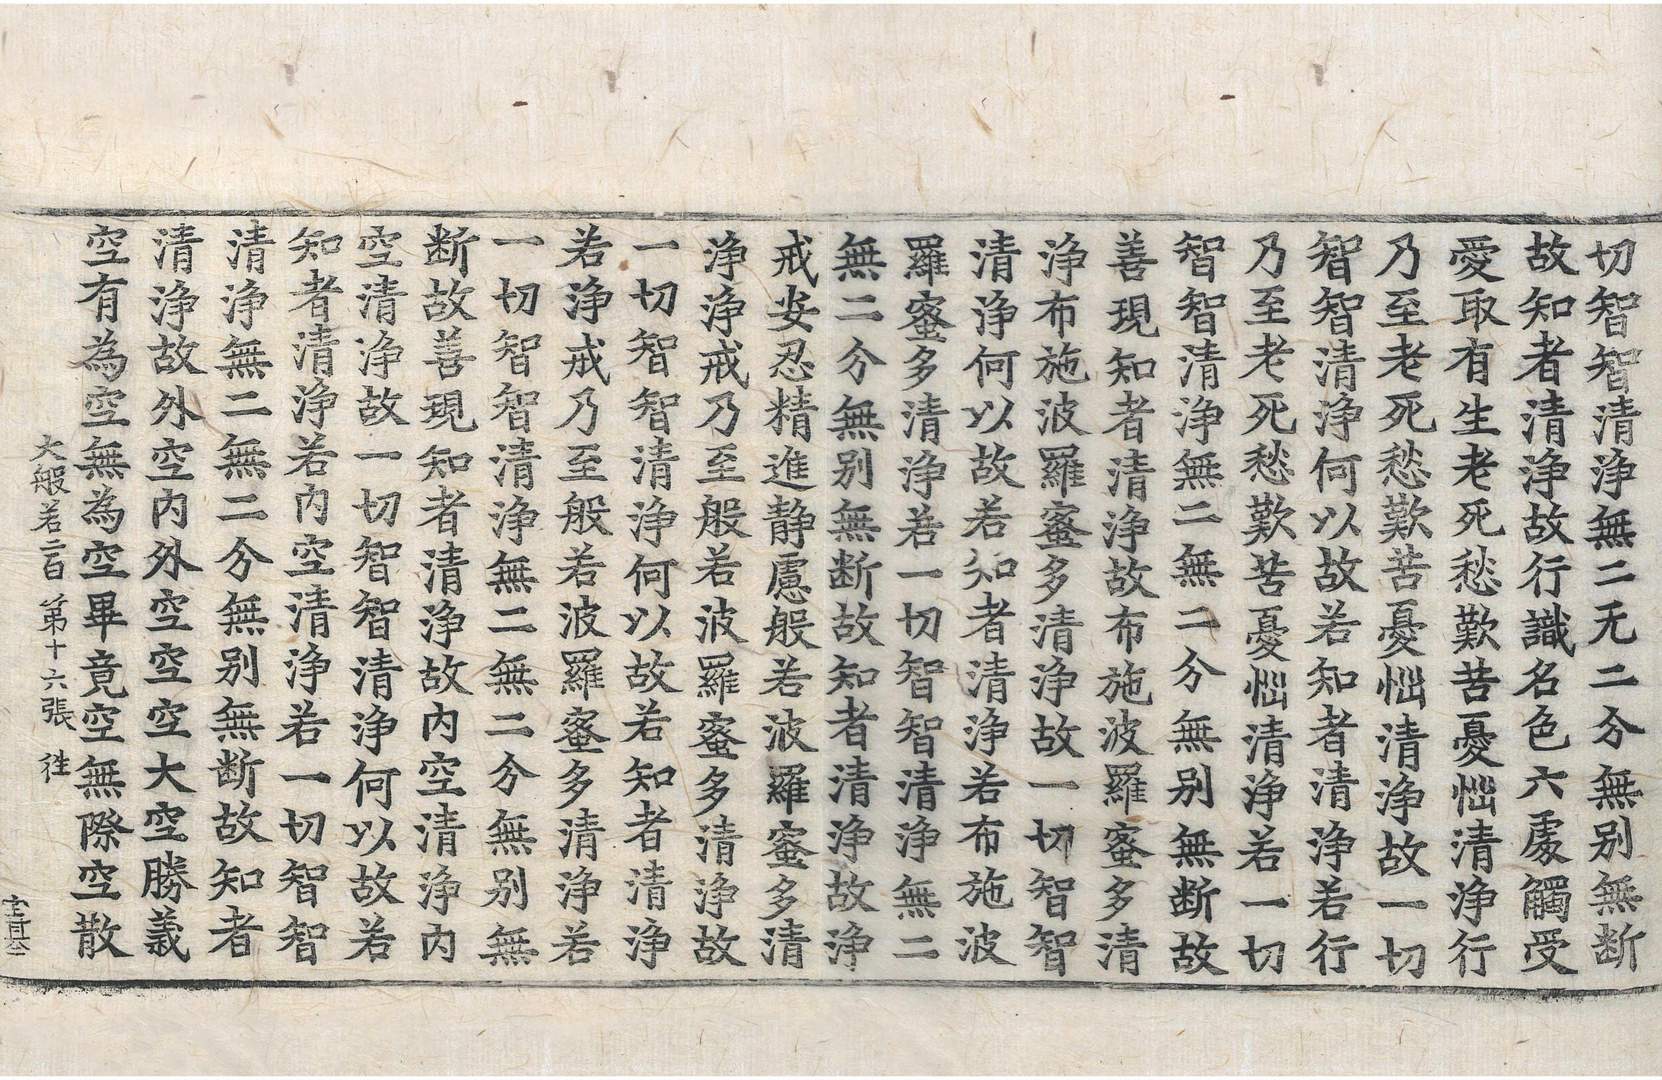 切智智清淨無二无二分無別無断
故知者清淨故行識名色六處觸受
愛取有生老死愁歎苦憂惱清淨行
乃至老死愁歎苦憂惱清淨故一切
智智清淨何以故若知者清淨若行
乃至老死愁歎苦憂惱清淨若一切
智智清淨無二無二分無別無断故
善現知者清淨故布施波羅蜜多清
淨布施波羅蜜多清淨故一切智智
清淨何以故若知者清淨若布施波
羅蜜多清淨若一切智智清淨無二
無二分無別無断故知者清淨故淨
戒安忍精進静慮般若波羅蜜多清
淨淨戒乃至般若波羅蜜多清淨故
一切智智清淨何以故若知者清淨
若淨戒乃至般若波羅蜜多清淨若
一切智智清淨無二無二分無別無
断故善現知者清淨故內空清淨內
空清淨故一切智智清淨何以故若
知者清淨若內空清淨若一切智智
清淨無二無二分無別無断故知者
清淨故外空內外空空空大空勝義
空有為空無為空畢竟空無際空散
大般若二百 第十六張 往